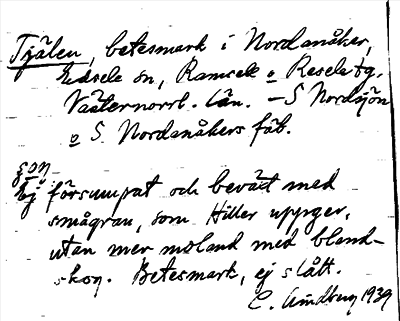 Tjälen, betesmark i Nordanåker,
Edsele sn, Ramsele o Resele tg.
Västernorrl. län. – S Nordsjön
o S Nordanåkers fäb.
son
Ej försumpat och beväxt med
smågran, som Hiller uppger,
utan mer moland med bland-
skog. Betesmark, ej slått.
C. Lindberg 1939